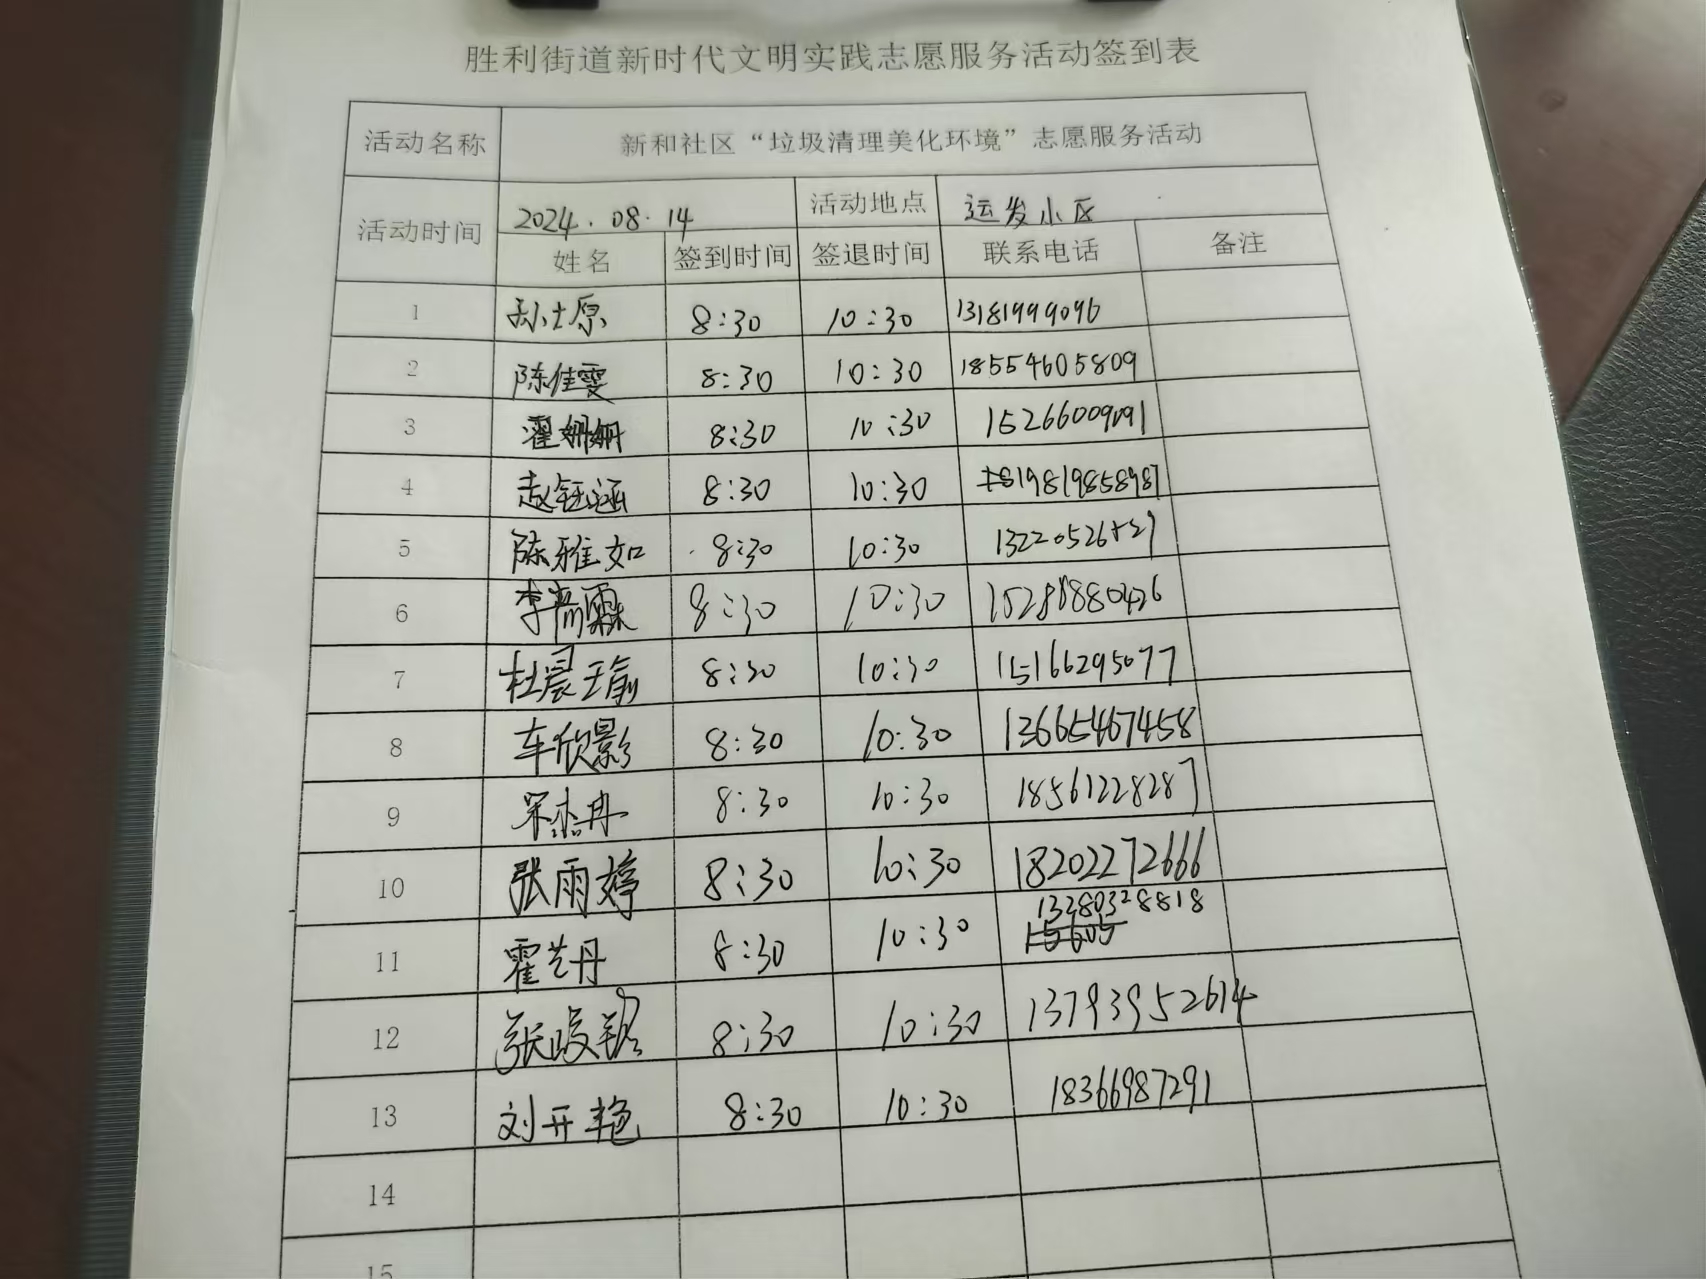 胜利街道新时代文明实践志愿服务活动签到表
活动名称 新和社区“垃圾清理美化环境”志愿服务活动
活动时间 2024.08.14 活动地点 运发小区
姓名 签到时间 签退时间 联系电话 备注
1 孙士原 8:30 10:30 13181999096
2 陈佳雯 8:30 10:30 18554605809
3 翟姗姗 8:30 10:30 15266009091
4 赵钰涵 8:30 10:30 19819858987
5 陈雅如 8:30 10:30
6 李 霖 8:30 10:30 15288880426
7 杜晨瑜 8:30 10:30 15166295077
8 车欣影 8:30 10:30 13665467458
9 宋杰冉 8:30 10:30 18561228287
10 张雨婷 8:30 10:30 18202272666
11 霍艺丹 8:30 10:30 13280328818
15605
12 张峻铭 8:30 10:30 13793952614
13 刘开艳 8:30 10:30 18366987291
14
15